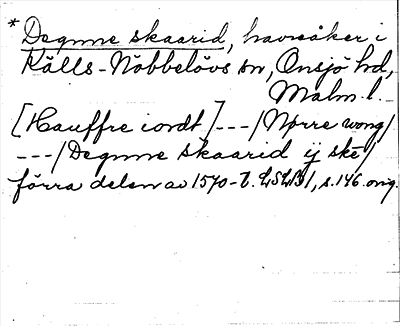 * Degnne skaarid, havreåker i
Källs-Nöbbelövs sn, Onsjö hd,
Malm. l.
[Hauffre iordt] --- / Nørre wong /
--- / Degnne skaarid ij skē /
förra delen av 1570-t. LSLB 1, s. 146. orig.